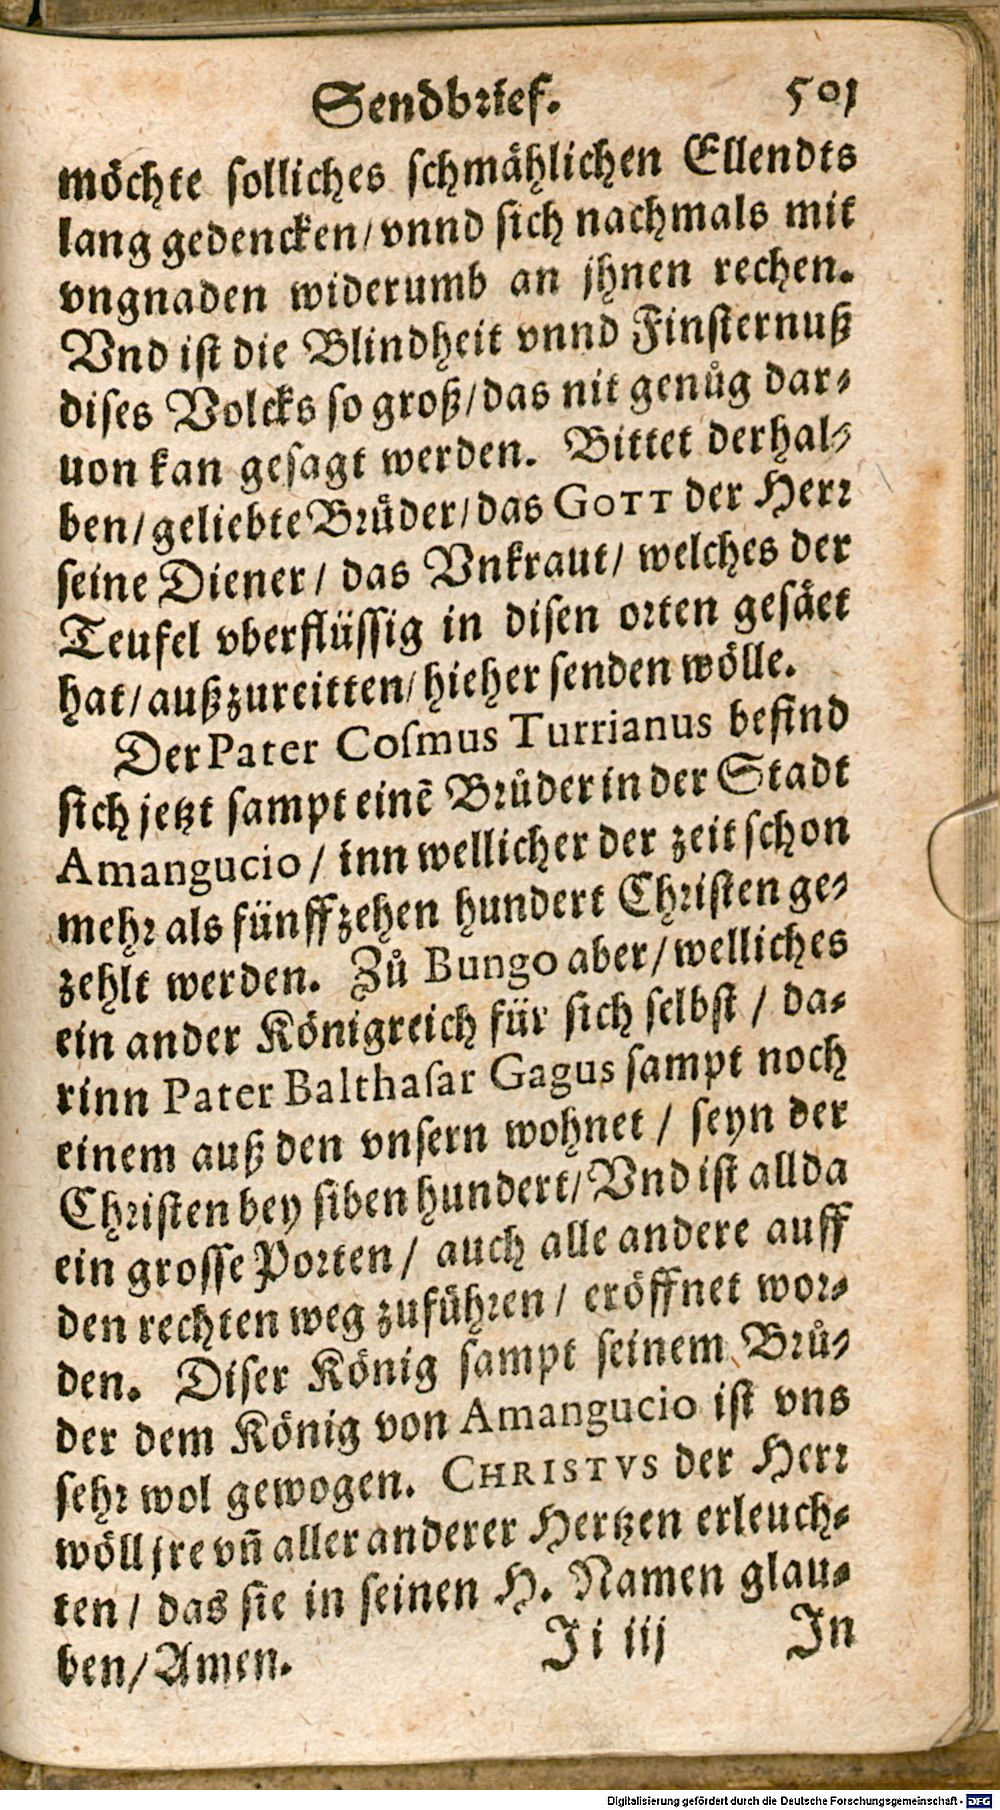 Sendbrief. 501
möchte solliches schmählichen Ellendts
lang gedencken/ vnnd sich nachmals mit
vngnaden widerumb an jhnen rechen.
Vnd ist die Blindheit vnnd Finsternuß
dises Volcks so groß/ das nit genůg dar-
uon kan gesagt werden. Bittet derhal-
ben/ geliebte Brůder/ das GOTT der Herr
seine Diener/ das Vnkraut/ welches der
Teufel vberflüssig in disen orten gesäet
hat/ außzureitten/ hieher senden wölle.
Der Pater Cosmus Turrianus befind
sich jetzt sampt einẽ Brůder in der Stadt
Amangucio/ inn wellicher der zeit schon
mehr als fünffzehen hundert Christen ge-
zehlt werden. Zů Bungo aber/ welliches
ein ander Königreich für sich selbst/ da-
rinn Pater Balthasar Gagus sampt noch
einem auß den vnsern wohnet/ seyn der
Christen bey siben hundert/ Vnd ist allda
ein grosse Porten/ auch alle andere auff
den rechten weg zuführen/ eröffnet wor-
den. Diser König sampt seinem Brů-
der dem König von Amangucio ist vns
sehr wol gewogen. CHRISTVS der Herr
wöll jre vñ aller anderer Hertzen erleuch-
ten/ das sie in seinen H. Namen glau-
ben/ Amen.
Ii iij In
Digitalisierung gefördert durch die Deutsche Forschungsgemeinschaft - DFG